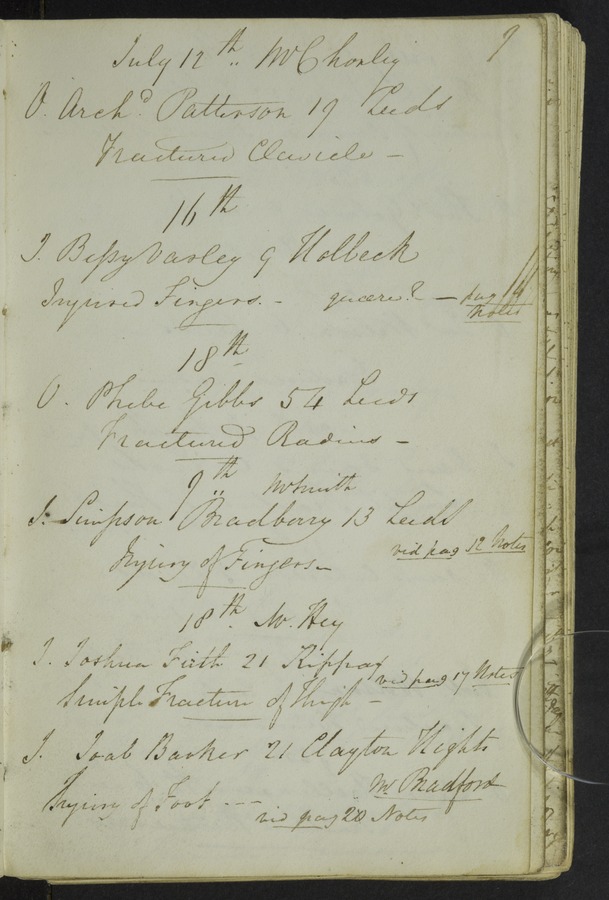 9
July 12th.. Mr Chorley
O. Archd. Patterson 19 Leeds
Fractured Clavicle -
16th
I. Bessy Varley 9 Holbeck
Injured Fingers. - quære? - pag 14
Notes
18th
O. Phebe Gibbs 54 Leeds
Fractured Radius -
9th Mr Smith
I. Simpson Bradberry 13 Leeds
Injury of Fingers - vid pag 12 Notes
18th. Mr. Hey
I. Joshua Firth 21 Kippax
vid pag 17 Notes
Simple Fracture of Thigh -
I. Joab Barker 21 Clayton Hights
Nr Bradford
Injury of Foot ---
vid pag 20 Notes